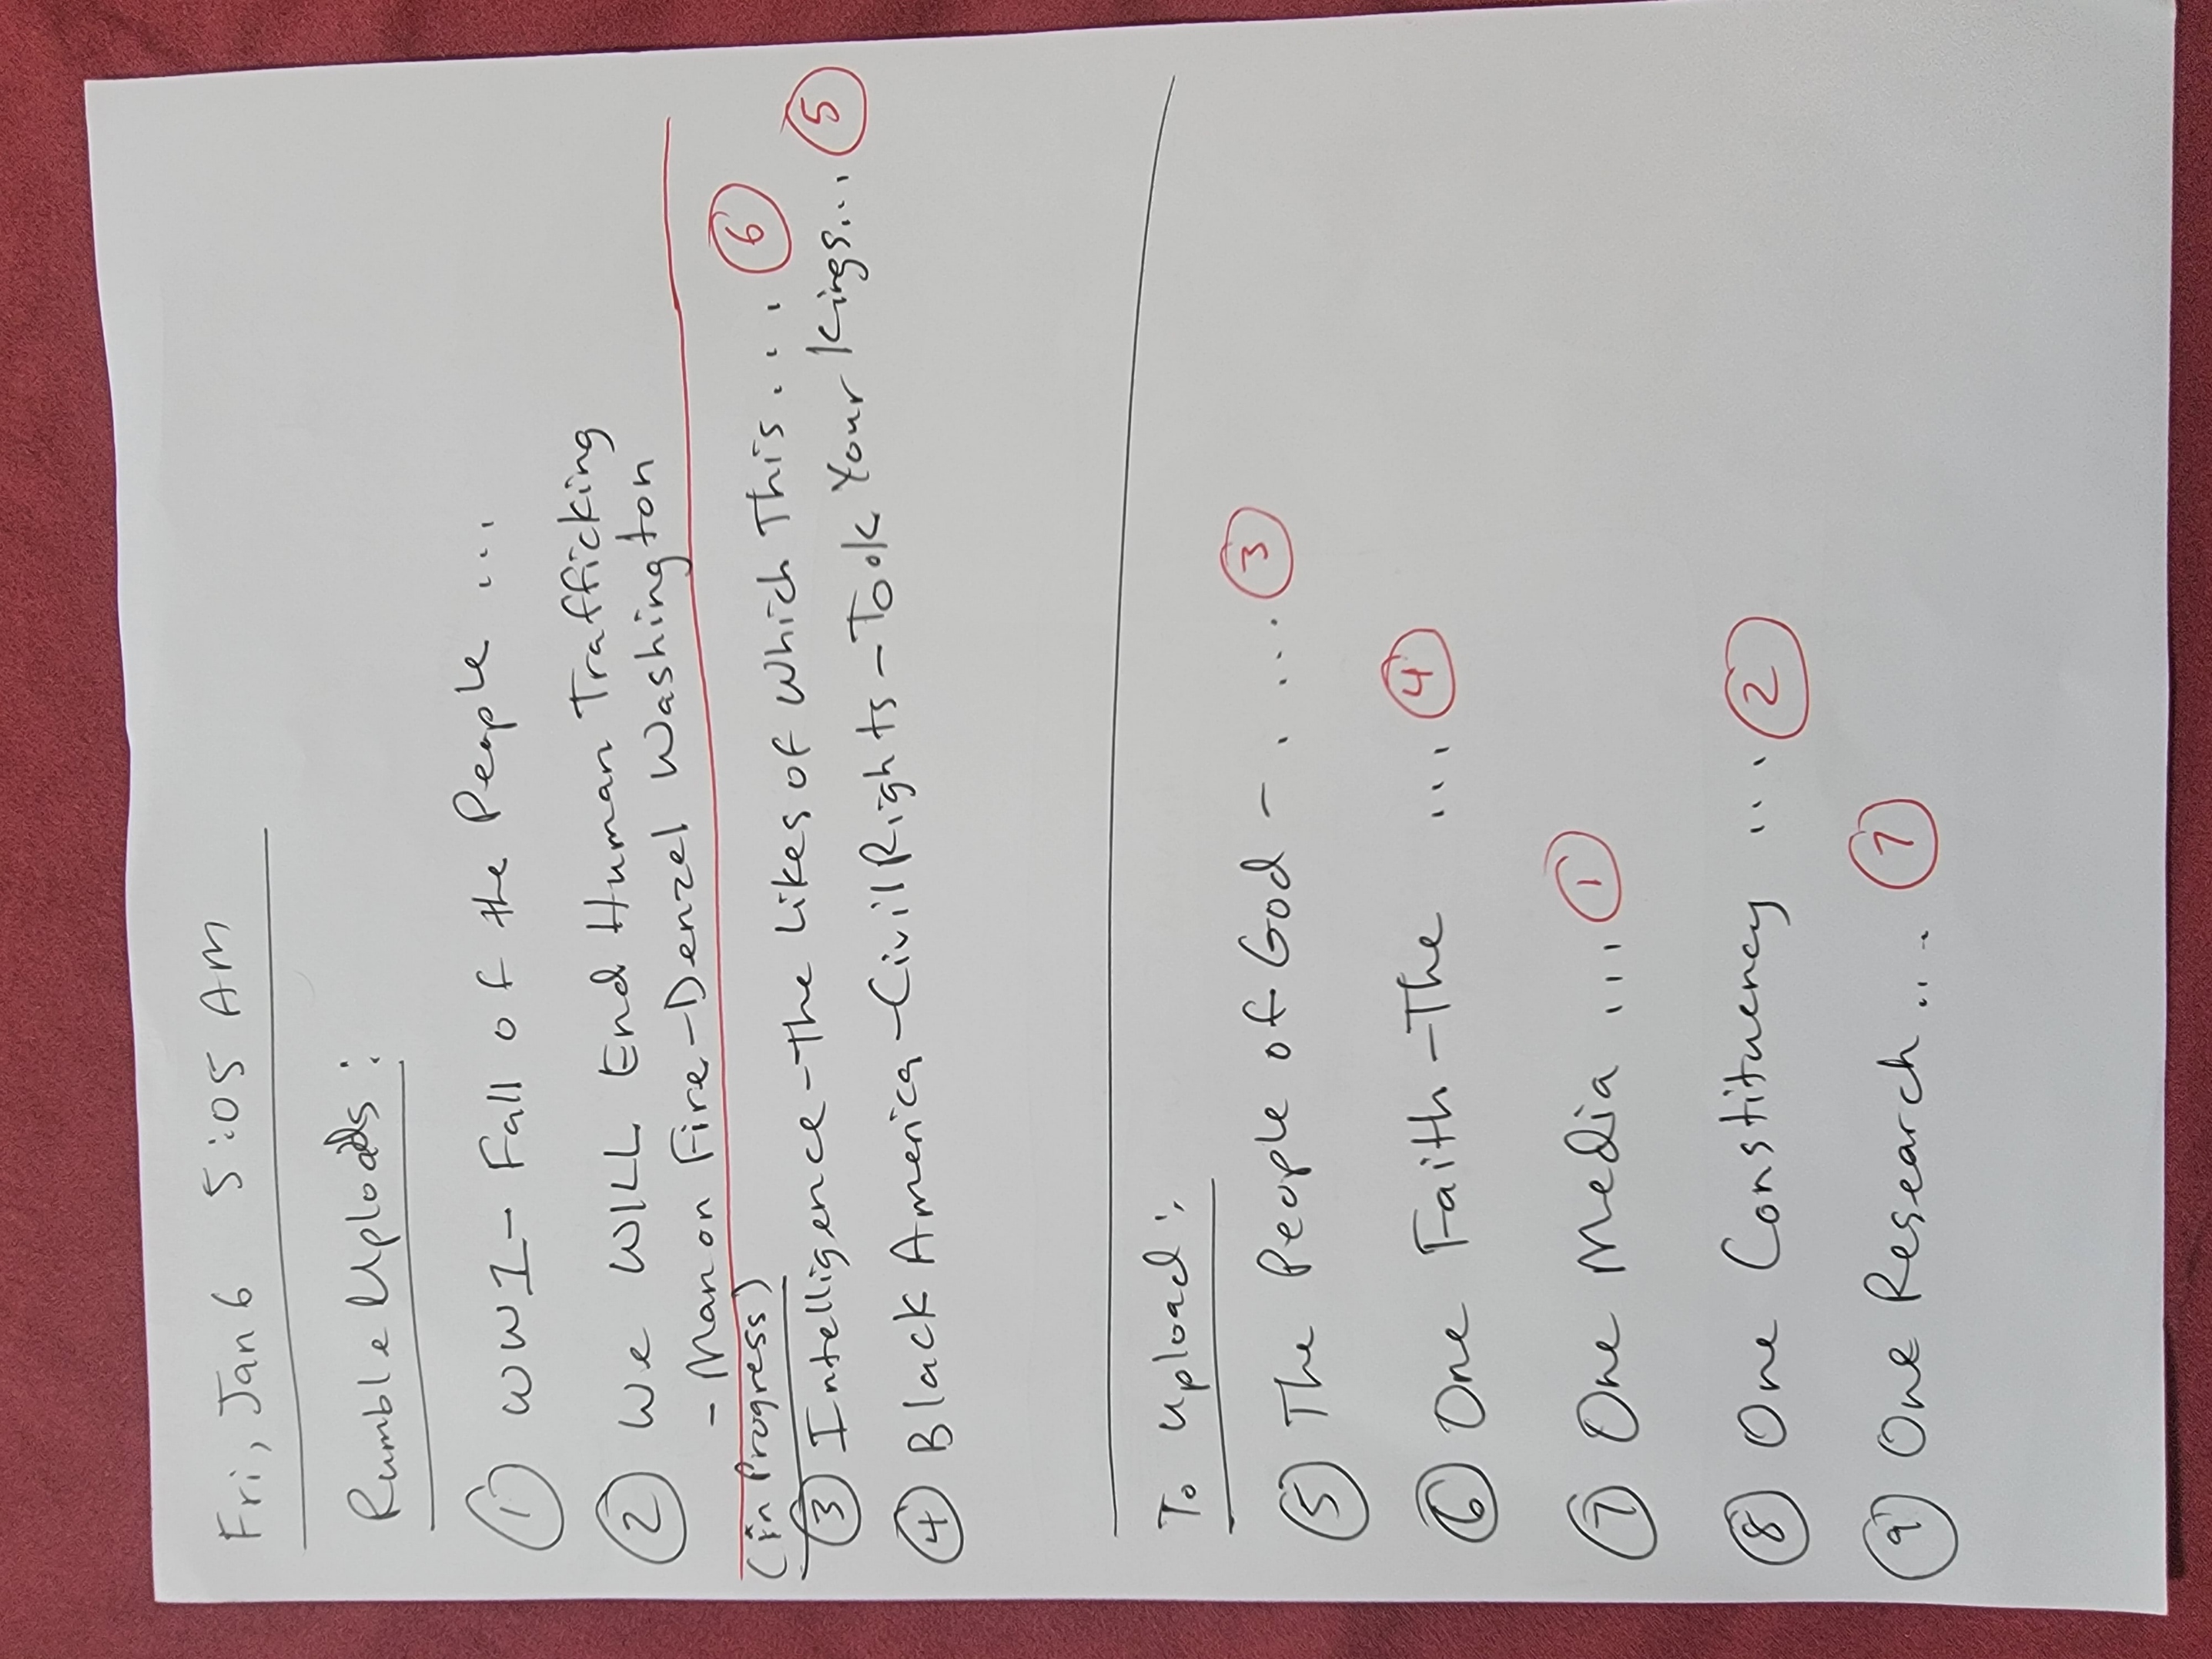 Fri, Jan 6 5:05 AM
Rumble Uploads:
① WW1 - Fall of the People ...
② We WILL End Human Trafficking
- Man on Fire - Denzel Washington
(in Progress)
③ Intelligence - The Likes of Which This... ⑥
④ Black America - Civil Rights - Took Your Kings... ⑤
To Upload:
⑤ The People of God - .... ③
⑥ One Faith - The ... ④
⑦ One Media ... ①
⑧ One Constituency ... ②
⑨ One Research .... ⑦